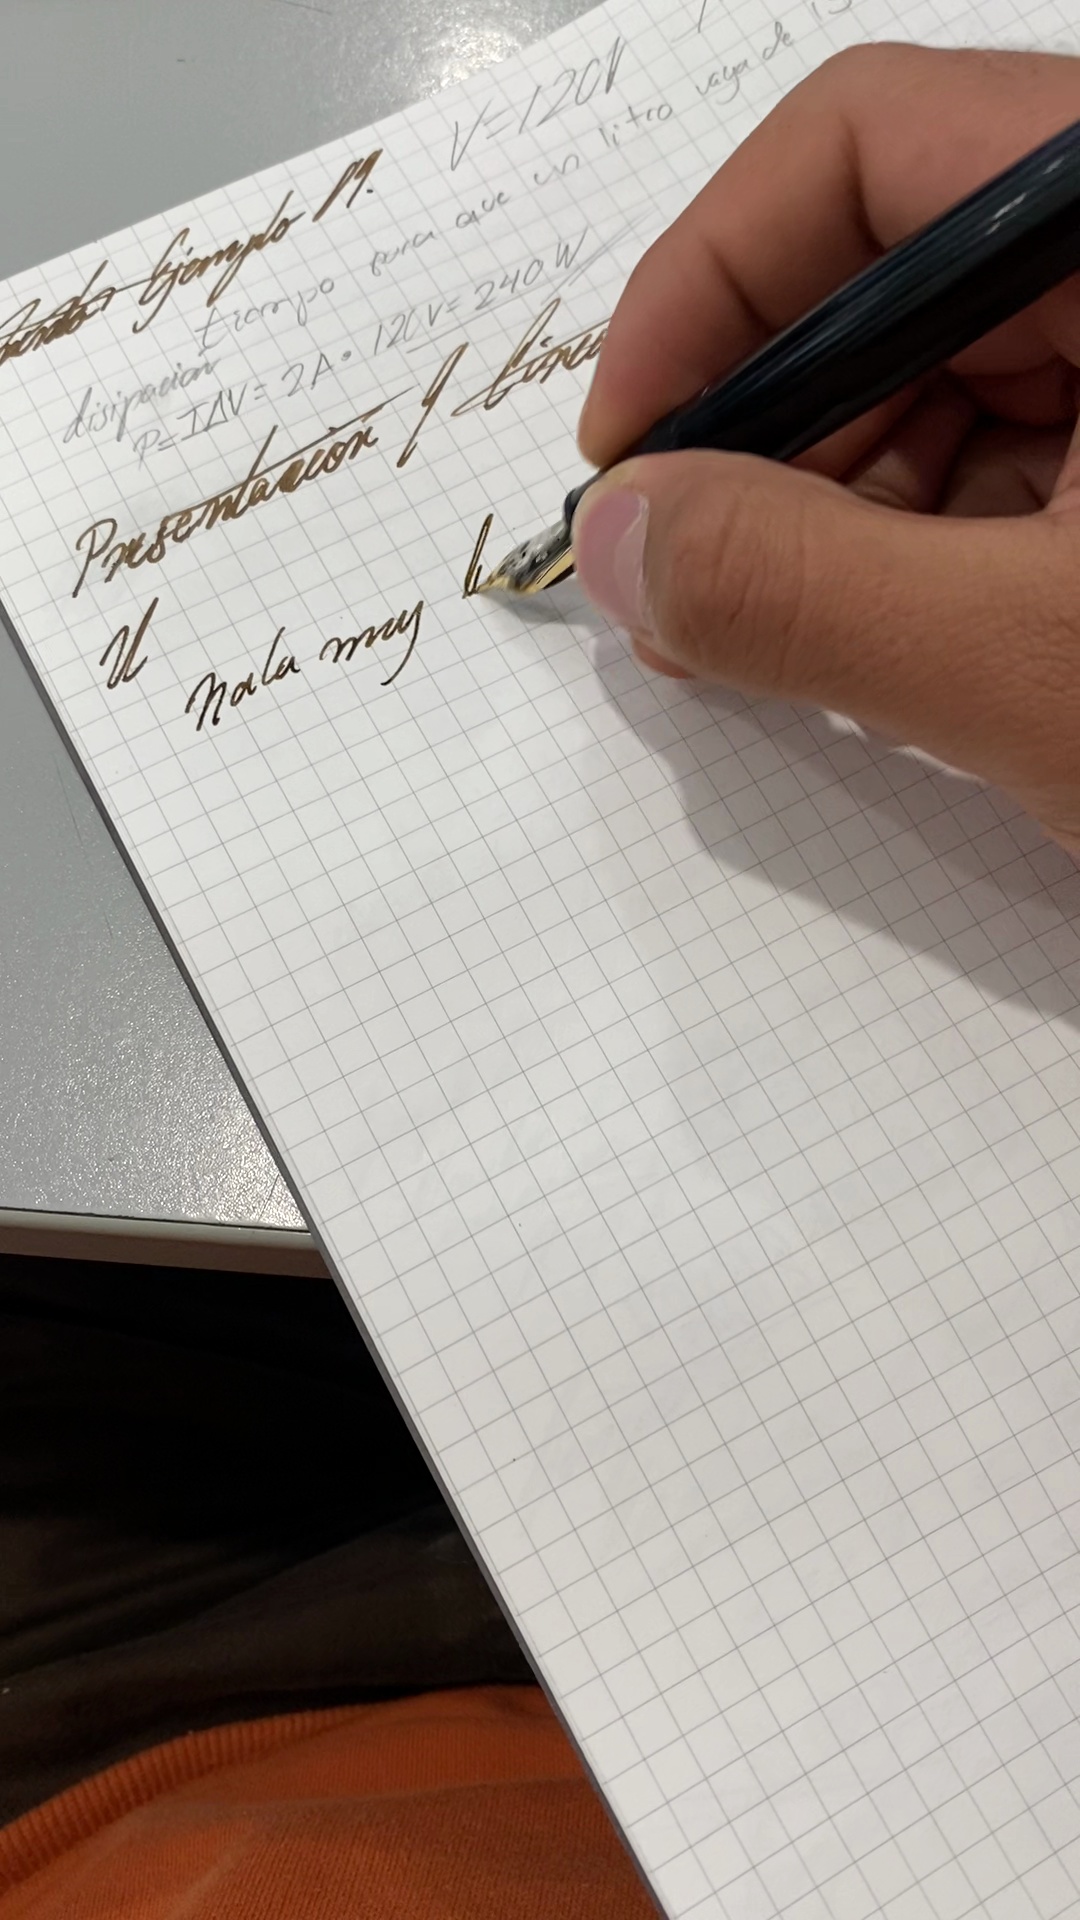 V=120V
Ejemplo 19.
tiempo para que un litro vaya de 15
disipación
P=IΔV= 2A·120V=240W
Presentación y
U
Nala muy b